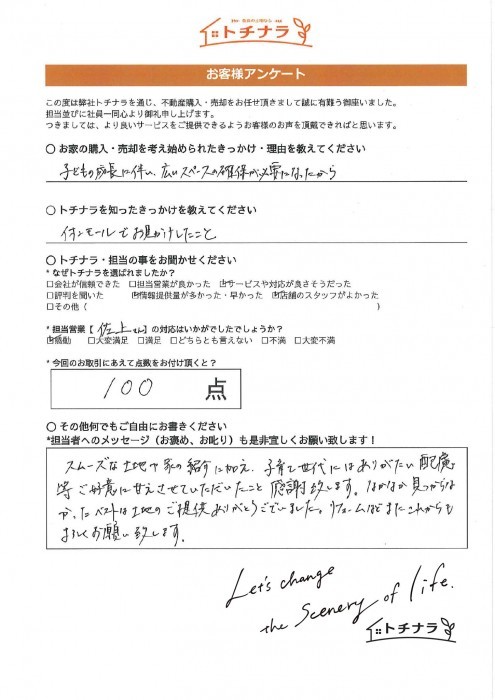 トチナラ
お客様アンケート
この度は弊社トチナラを通じ、不動産購入・売却をお任せ頂きまして誠に有難う御座いました。
担当並びに社員一同心より御礼申し上げます。
つきましては、より良いサービスをご提供できるようお客様のお声を頂戴できればと思います。
○ お家の購入・売却を考え始められたきっかけ・理由を教えてください
子どもの成長に伴い、広いスペースの確保が必要になったから
○ トチナラを知ったきっかけを教えてください
イオンモールでお見かけしたこと
○ トチナラ・担当の事をお聞かせください
* なぜトチナラを選ばれましたか？
□会社が信頼できた □担当営業が良かった ☑サービスや対応が良さそうだった
□評判を聞いた ☑情報提供量が多かった・早かった ☑店舗のスタッフがよかった
□その他（ ）
* 担当営業【 佐上さん 】の対応はいかがでしたでしょうか？
☑感動 □大変満足 □満足 □どちらとも言えない □不満 □大変不満
* 今回のお取引にあえて点数をお付け頂くと？
100 点
○ その他何でもご自由にお書きください
*担当者へのメッセージ（お褒め、お叱り）も是非宜しくお願い致します！
スムーズな土地や家の紹介に加え、子育て世代にはありがたい配慮
等ご好意に甘えさせていただいたこと感謝致します。なかなか見つからな
かったベストな土地のご提供ありがとうございました。リフォームなどまたこれからも
よろしくお願い致します。
Let's change
the Scenery of life.
トチナラ